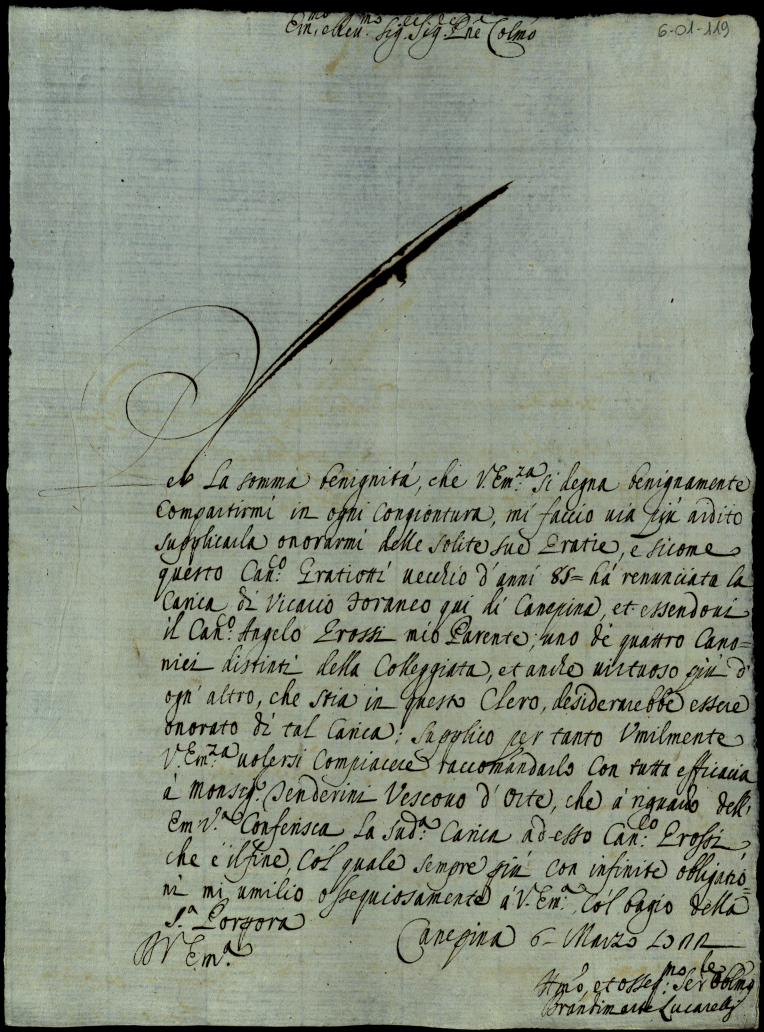 Em.mo e Reu.mo Sig.re Sig.re P.ne Colmo
6-01-119
Per La somma benignità, che V.Em.za si degna benignamente
Compartirmi in ogni Congiontura, mi faccio uia più ardito
supplicarla onorarmi delle solite sue Gratie, e sicome
questo Can.o Gratiotti uecchio d'anni 85= hà renunciata la
Carica di Vicario foraneo qui di Canepina, et essendoui
il Can.o Angelo Grossi mio Parente, uno de quattro Cano=
nici distinti della Colleggiata, et anche uirtuoso più d'
ogn'altro, che stia in questo Clero, desiderarebbe essere
onorato di tal Carica; Supplico per tanto Vmilmente
V.Em.za uolersi Compiacere raccomandarlo con tutta efficacia
à Monsig.r Tenderini Vescouo d'Orte, che à riguardo dell'
Em.V.a Conferisca La sud.a Carica ad esso Can.o Grossi
che è il fine, Col quale sempre più con infinite obligatio=
ni mi umilio ossequiosamente à V.Em.a, Col bagio della
S.a Porpora
D V.Em.a
Canepina 6 Marzo
Hmo, et osseq.mo Ser.le Oblmo
Brandimarte Lucarelli